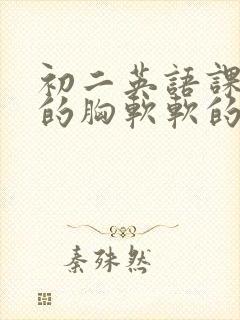 初二英語課
的胸軟軟的
秦殊然